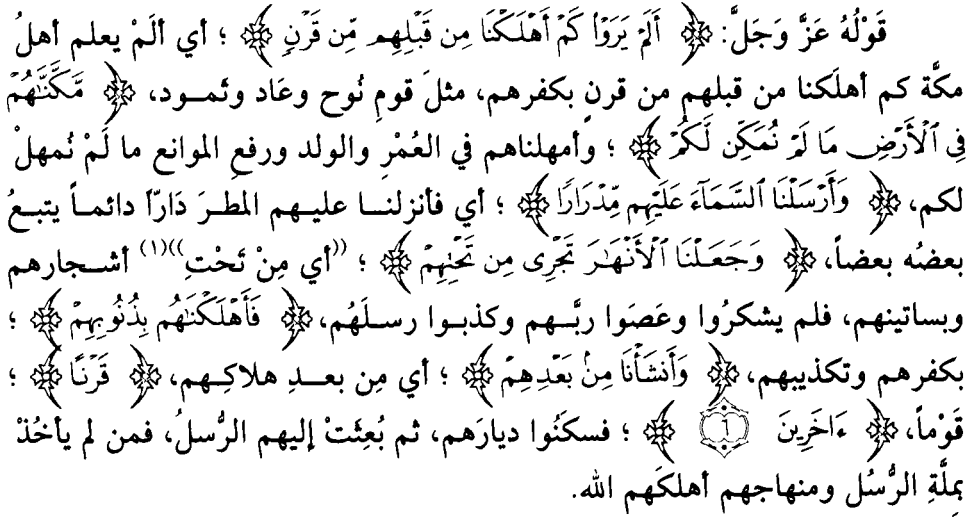 قَوْلُهُ عَزَّ وَجَلَّ: ﴿ أَلَمْ يَرَوْا۟ كَمْ أَهْلَكْنَا مِن قَبْلِهِم مِّن قَرْنٍ ﴾ ؛ أي ألَمْ يعلم أهلُ
مكَّة كم أهلَكنا من قبلهم من قرنٍ بكفرهم، مثلَ قومِ نُوح وعَاد وثمـود، ﴿ مَّكَّنَّٰهُمْ
فِى ٱلْأَرْضِ مَا لَمْ نُمَكِّن لَّكُمْ ﴾ ؛ وأمهلناهم في العُمْرِ والولد ورفعِ الموانع ما لَمْ نُمهلْ
لكم، ﴿ وَأَرْسَلْنَا ٱلسَّمَآءَ عَلَيْهِم مِّدْرَارًا ﴾ ؛ أي فأنزلنـا عليـهم المطـرَ دَارّاً دائمـاً يتبـعُ
بعضُه بعضاً، ﴿ وَجَعَلْنَا ٱلْأَنْهَٰرَ تَجْرِى مِن تَحْتِهِمْ ﴾ ؛ ((أي مِنْ تَحْتِ))(١) أشـجارهم
وبساتينهم، فلم يشكرُوا وعَصَوا ربَّـهم وكذبـوا رسـلَهُم، ﴿ فَأَهْلَكْنَٰهُم بِذُنُوبِهِمْ ﴾ ؛
بكفرهم وتكذيبهم، ﴿ وَأَنشَأْنَا مِنۢ بَعْدِهِمْ ﴾ ؛ أي مِن بعـدِ هلاكِـهم، ﴿ قَرْنًا ﴾ ؛
قَوْماً، ﴿ ءَاخَرِينَ ٦ ﴾ ؛ فسكنُوا ديارَهم، ثم بُعِثَتْ إليهم الرُّسلُ، فمن لم يأخُذْ
بمِلَّةِ الرُّسُل ومنهاجهم أهلكَهم الله.